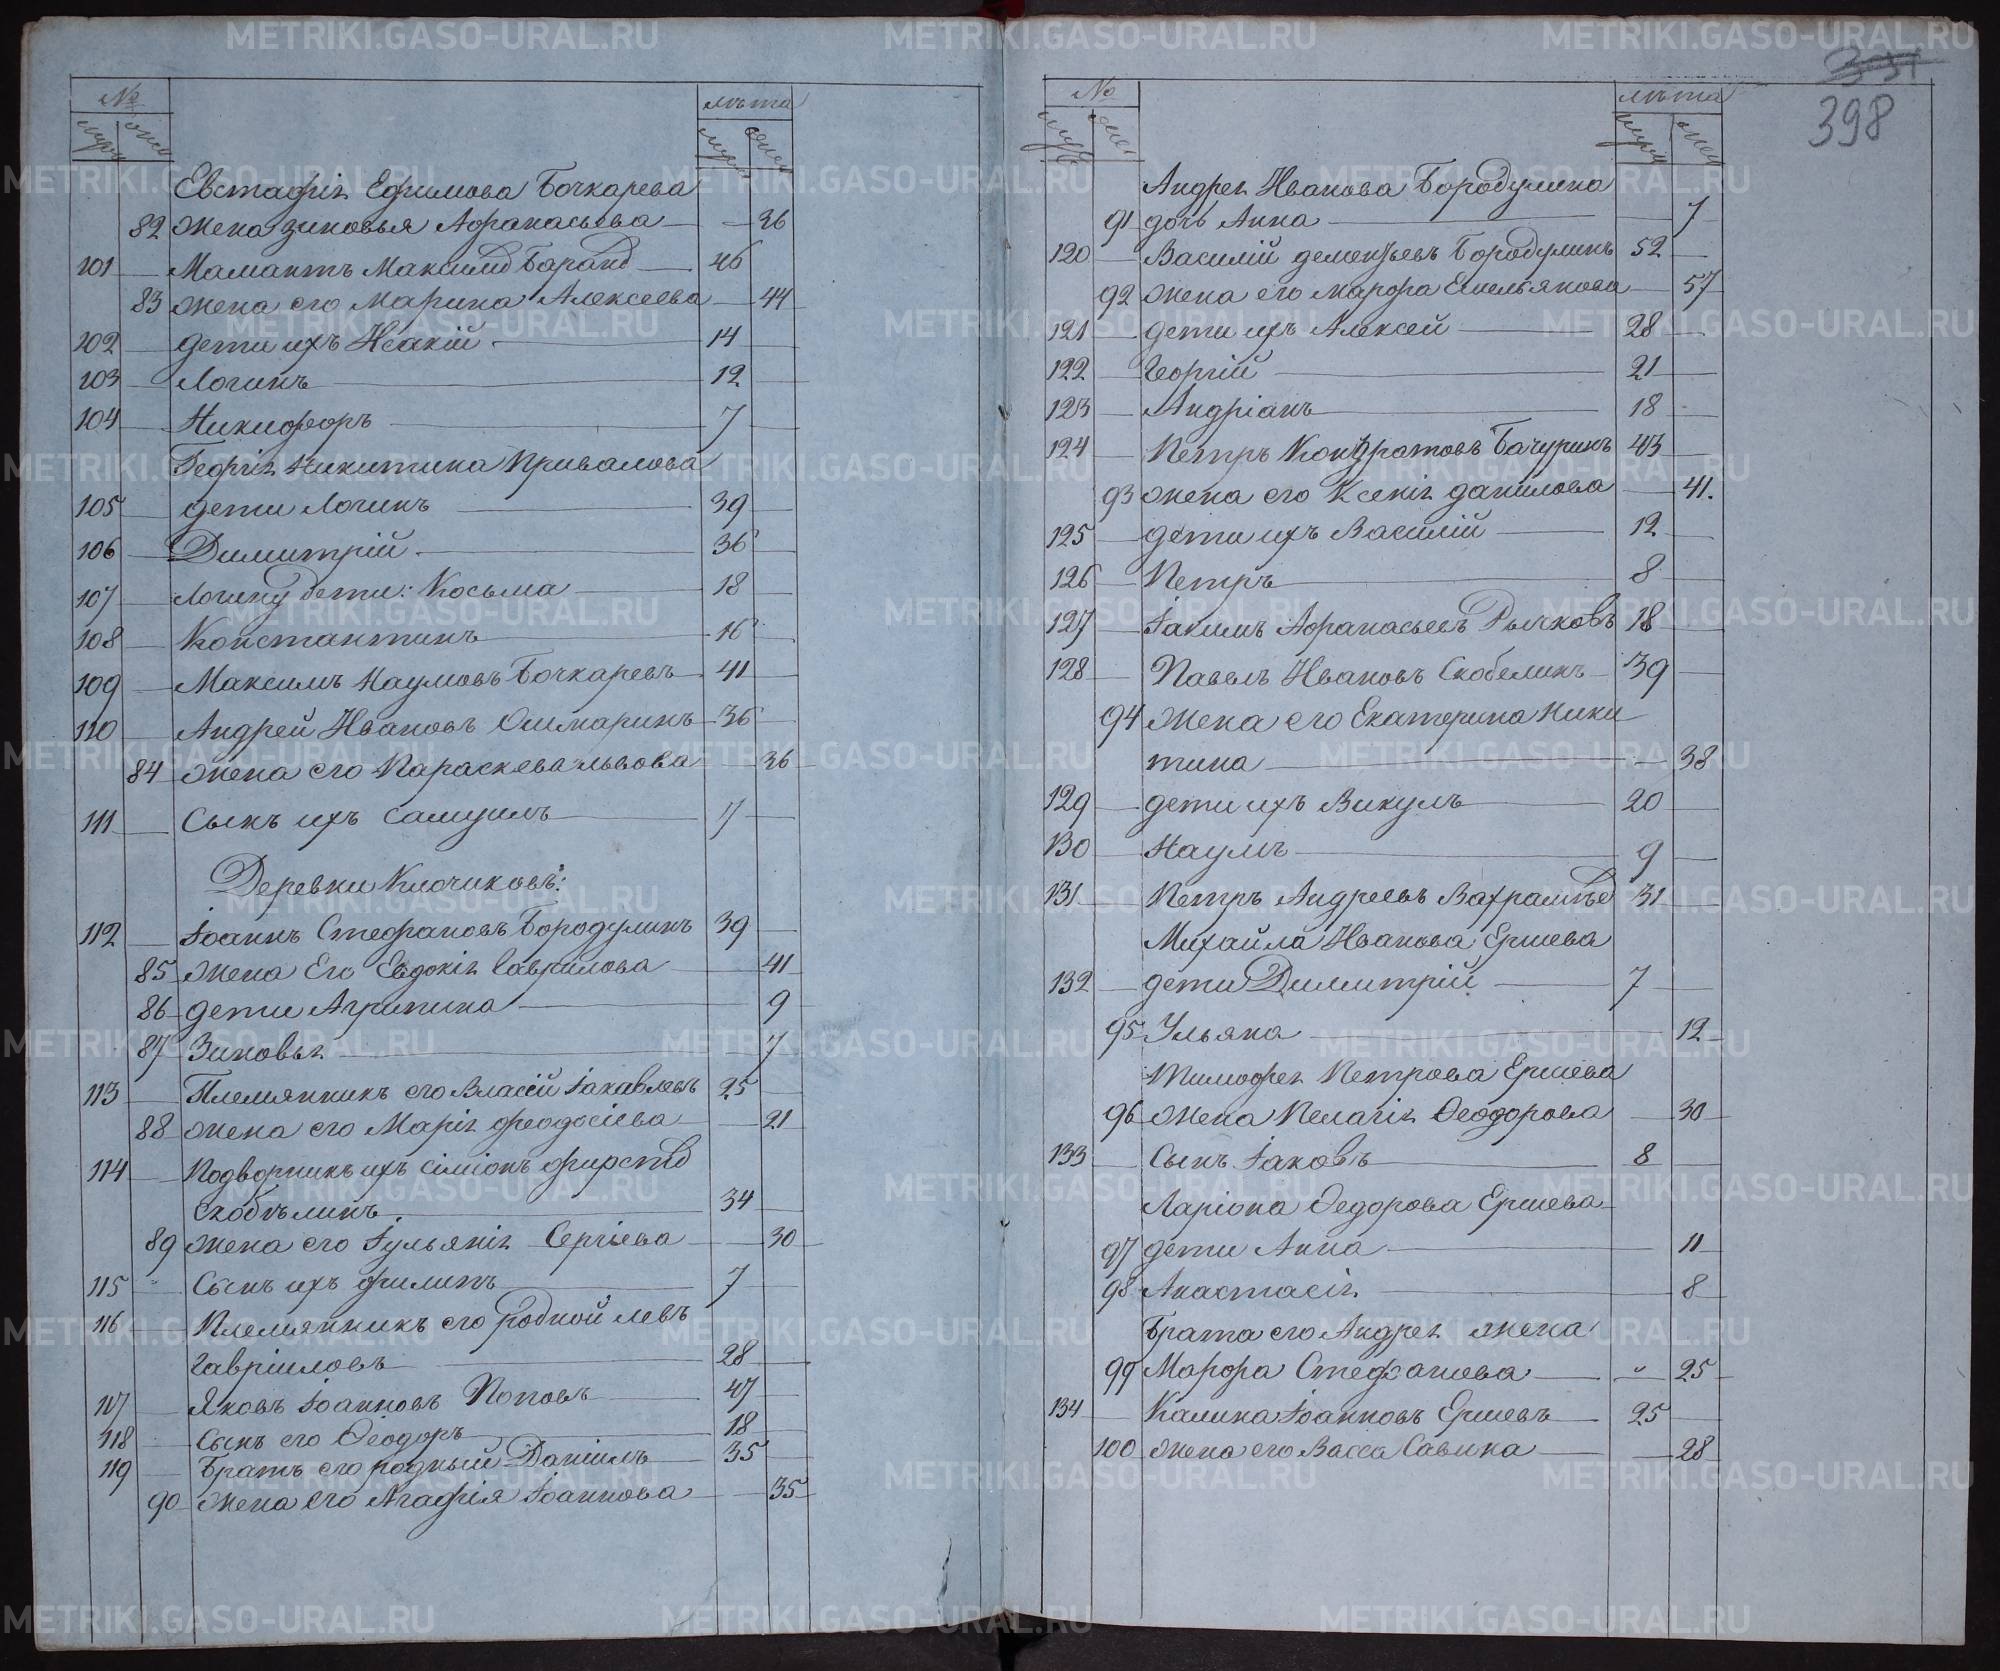 № лѣта
муж жен муж жен
Евстафія Ефимова Бочкарева
82 жена Зиновья Афанасьева — 36
101 Мамантъ Максимо 46
83 жена его Марина Алексеева — 44
102 дети ихъ Исакій 14
103 Логинъ 12
104 Никифоръ 7
Георгія Никитина Привалова
105 дети Логинъ 39
106 Димитрій 36
107 Логину дети: Косьма 18
108 Константинъ 16
109 Максимъ Наумовъ Бочкаревъ 41
110 Андрей Ивановъ Ошмаринъ 36
84 жена его Параскева Львова 36
111 Сынъ ихъ Самуилъ 7
Деревни Ключиковъ:
112 Іоаннъ Стефановъ Бородулинъ 39
85 жена Его Евдокія Гаврилова 41
86 дети Агрипина 9
87 Зиновья 7
113 Племянникъ его Власій Іакавлевъ 25
88 жена его Марія Феодосіева 21
114 Подворникъ ихъ Сіміонъ Фирсто
Скобѣлинъ 34
89 жена его Іульянія Сергіева 30
115 " Сынъ ихъ Филипъ 7
116 Племянникъ его родной Левъ
Гавріиловъ 28
117 Яковъ Іоанновъ Поповъ 47
118 Сынъ его Ѳеодоръ 18
119 Братъ его родный Даніилъ 35
90 жена его Агафія Іоаннова 35
398
№ лѣта
муж жен муж жен
Андрея Иванова Бородулина
91 дочь Анна 7
120 Василій Дементьевъ Бородулинъ 52
92 жена его Марфа Емельянова 57
121 дети ихъ Алексей 28
122 Георгій 21
123 Андріанъ 18
124 Петръ Кондратовъ Бачуринъ 43
93 жена его Ксенія Данилова 41.
125 дети ихъ Василій 12
126 Петръ 8
127 Іакимъ Афанасьевъ Рычковъ 18
128 Павелъ Ивановъ Скобелинъ 39
94 жена его Екатерина Ники
тина 38
129 дети ихъ Викулъ 20
130 Наумъ 9
131 Петръ Андреевъ Вахрамѣе 31
Михайла Иванова Ершева
132 дети Димитрій 7
95 Ульяна 12
Тимофея Петрова Ершева
96 жена Пелагія Ѳеодорова 30
133 Сынъ Іаковъ 8
Ларіона Ѳедорова Ершева
97 дети Анна 11
98 Анастасія 8
Брата его Андрея жена
99 Марфа Стефанова " 25
134 Калина Іоанновъ Ершевъ 25
100 жена его Васса Савина 28
METRIKI.GASO-URAL.RU